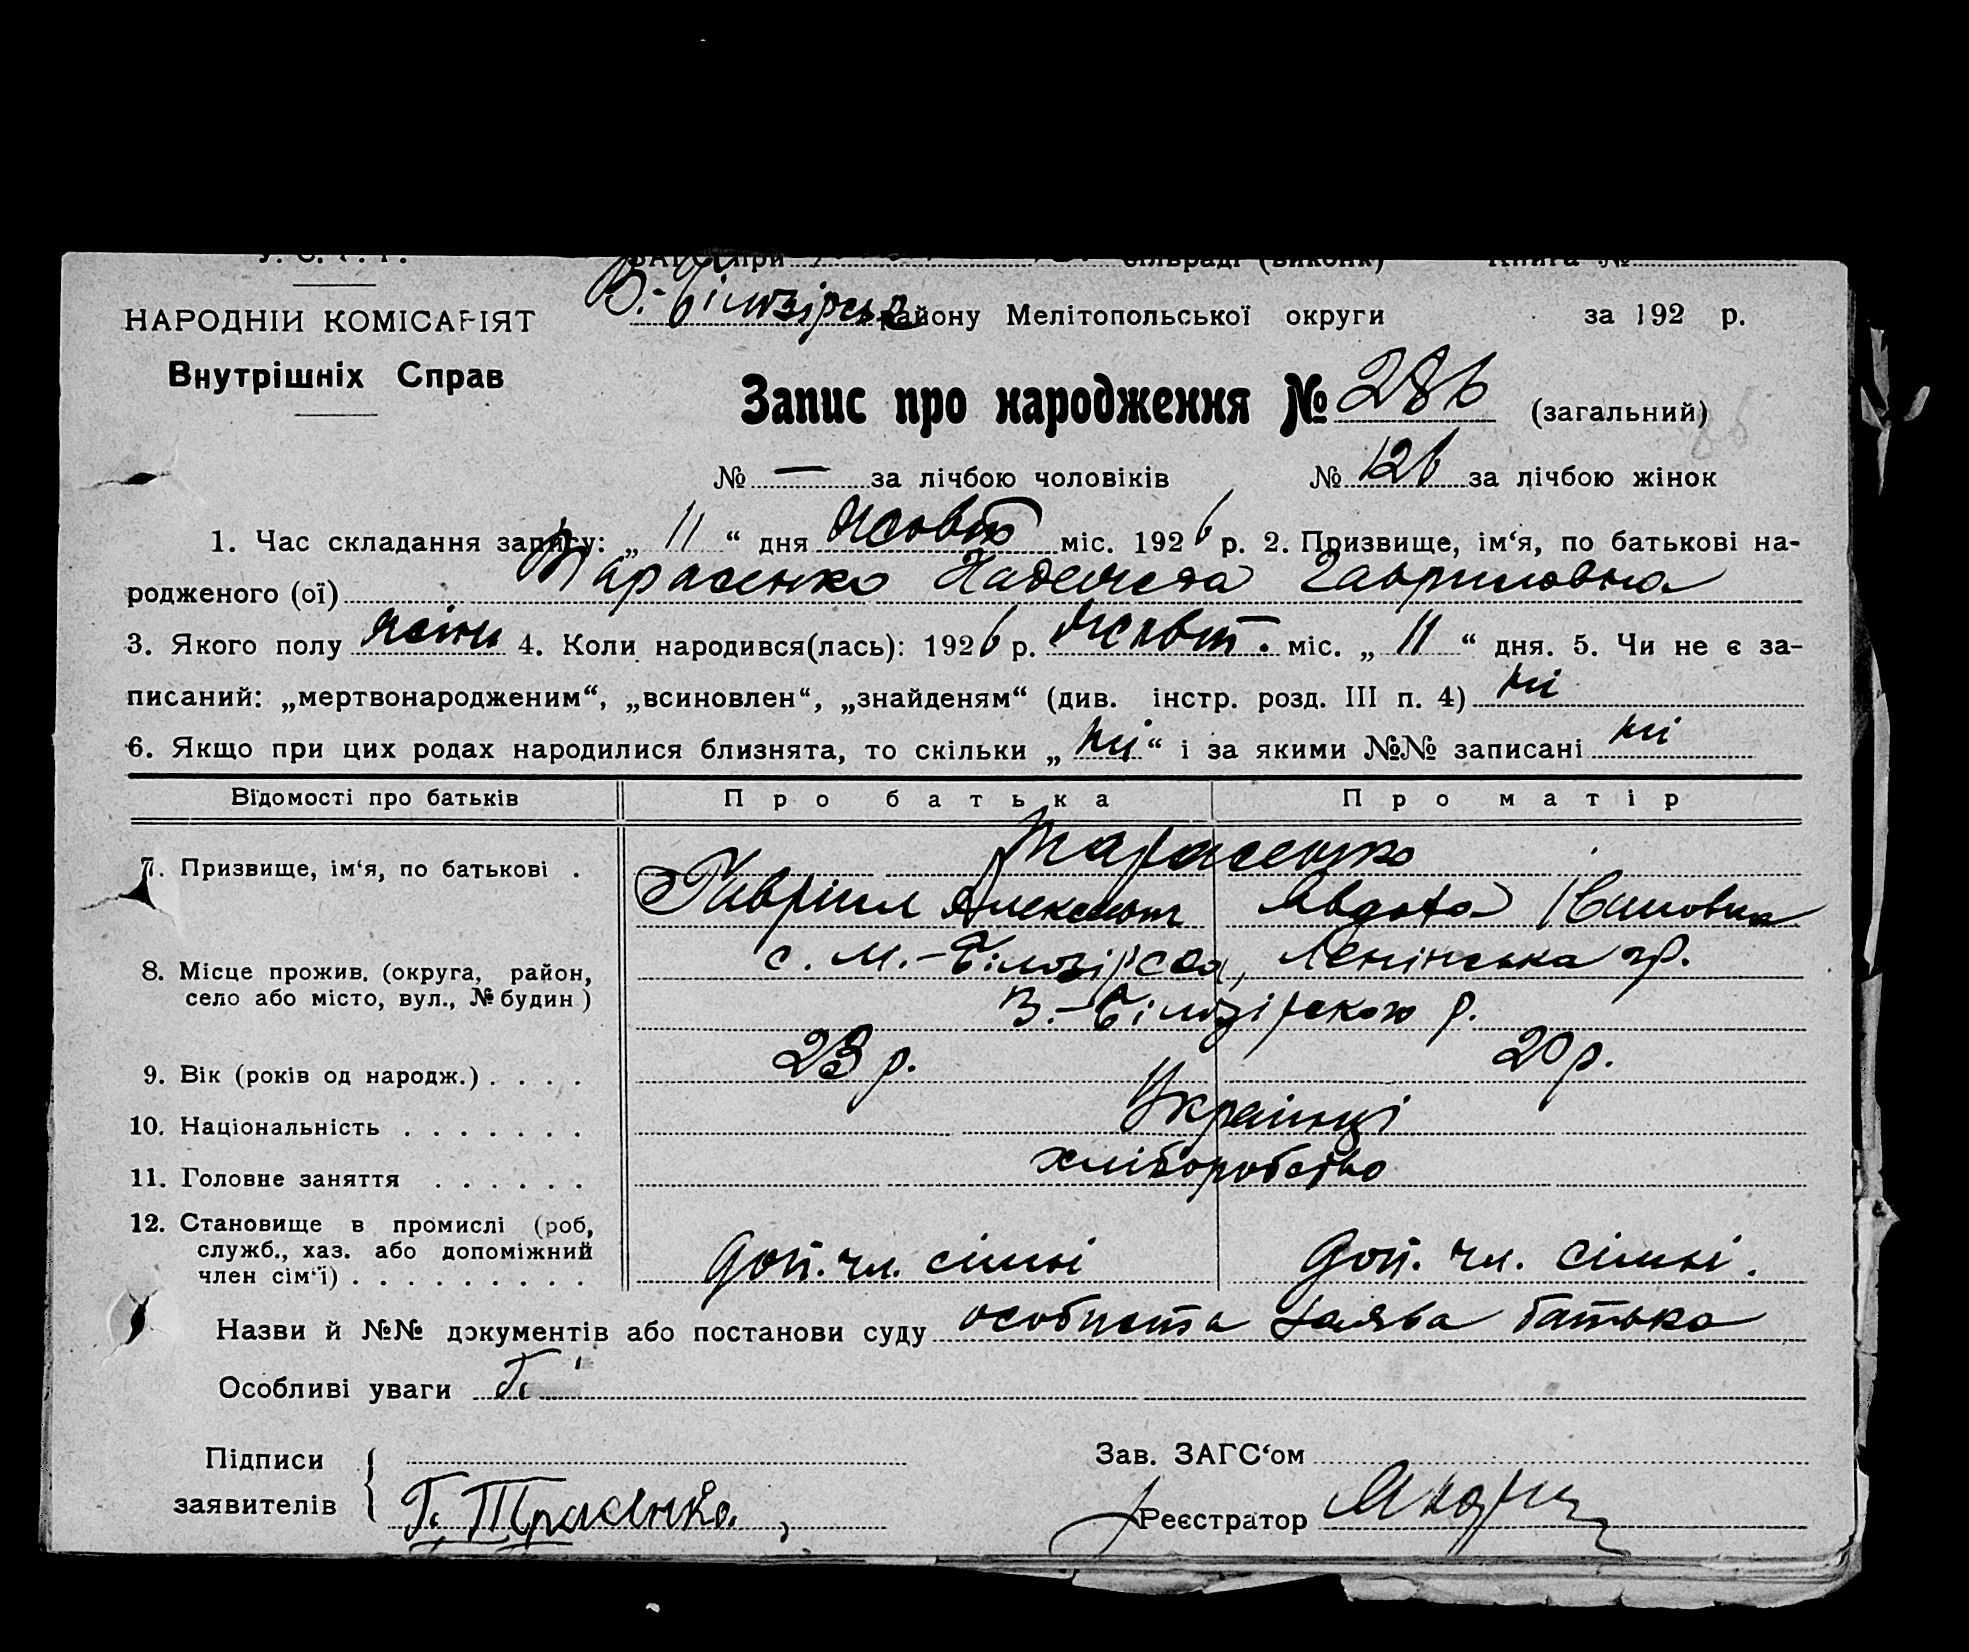 У. С. Р. Р.
ЗАГС при сільраді (виконк) Книга №
НАРОДНІЙ КОМІСАРІЯТ
В.-Білозірськ району Мелітопольської округи за 192 р.
Внутрішніх Справ
Запис про народження № 286 (загальний)
№ — за лічбою чоловіків № 126 за лічбою жінок
1. Час складання запису: „ 11 “ дня жовт міс. 1926 р. 2. Призвище, ім‘я, по батькові на-
родженого (ої) Тарасенко Надежда Гавриловна
3. Якого полу жіти 4. Коли народився(лась): 1926 р. жовт. міс. „ 11 “ дня. 5. Чи не є за-
писаний: „мертвонародженим“, „всиновлен“, „знайденям“ (див. інстр. розд. III п. 4) ні
6. Якщо при цих родах народилися близнята, то скільки „ ні “ і за якими №№ записані ні
Відомості про батьків Про батька Про матір
Тарасенко
7. Призвище, ім‘я, по батькові .
Гавріил Александ Авдотя Ивановна
8. Місце прожив. (округа, район, с. М.-Білозірка, Ленінська гр.
село або місто, вул., № будин)
В.-Білозірского р.
9. Вік (років од народж.) . . . . 23 р. 20 р.
10. Національність . . . . . . . Українці
11. Головне заняття . . . . . . хліборобство
12. Становище в промислі (роб,
служб., хаз. або допоміжний
член сім‘ї) . . . . . . . . . доп. чл. сімьі доп. чл. сімьі.
Назви й №№ документів або постанови суду особиста заява батька
Особливі уваги Г.
Підписи Зав. ЗАГС‘ом
заявителів Г. Трасенко. Реєстратор